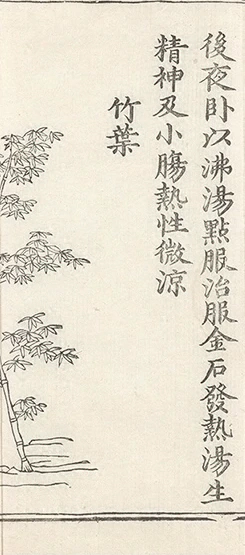 後夜卧以沸湯點服治服金石發熱湯生
精神及小腸熱性微涼
竹葉